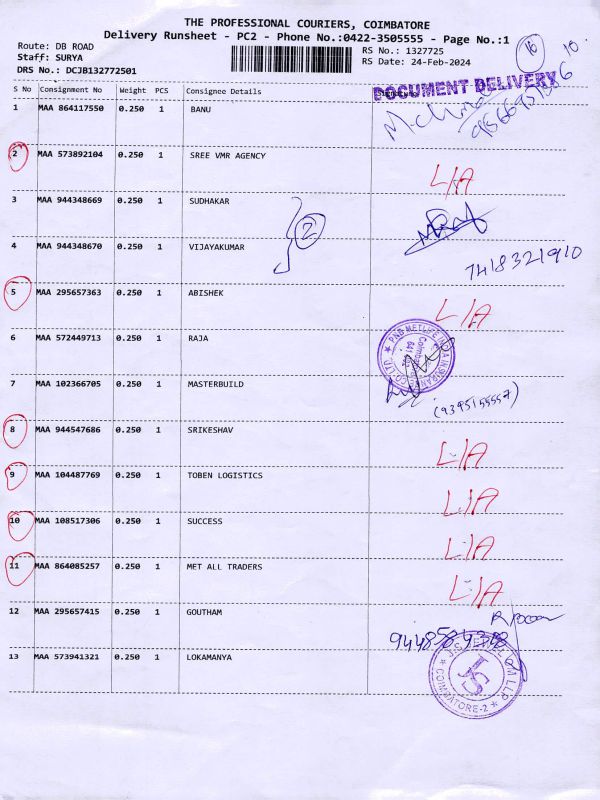 THE PROFESSIONAL COURIERS, COIMBATORE
Delivery Runsheet - PC2 - Phone No.:0422-3505555 - Page No.:1
Route: DB ROAD
Staff: SURYA
DRS No.: DCJB132772501
RS No.: 1327725
RS Date: 24-Feb-2024
16 10
DOCUMENT DELIVERY
S No Consignment No Weight PCS Consignee Details
1 MAA 864117550 0.250 1 BANU
2 MAA 573892104 0.250 1 SREE VMR AGENCY L/A
3 MAA 944348669 0.250 1 SUDHAKAR
2
4 MAA 944348670 0.250 1 VIJAYAKUMAR 7418321910
5 MAA 295657363 0.250 1 ABISHEK L/A
6 MAA 572449713 0.250 1 RAJA
7 MAA 102366705 0.250 1 MASTERBUILD (9395155557)
8 MAA 944547686 0.250 1 SRIKESHAV L/A
9 MAA 104487769 0.250 1 TOBEN LOGISTICS L/A
10 MAA 108517306 0.250 1 SUCCESS L/A
11 MAA 864085257 0.250 1 MET ALL TRADERS L/A
12 MAA 295657415 0.250 1 GOUTHAM
13 MAA 573941321 0.250 1 LOKAMANYA
COIMBATORE-2